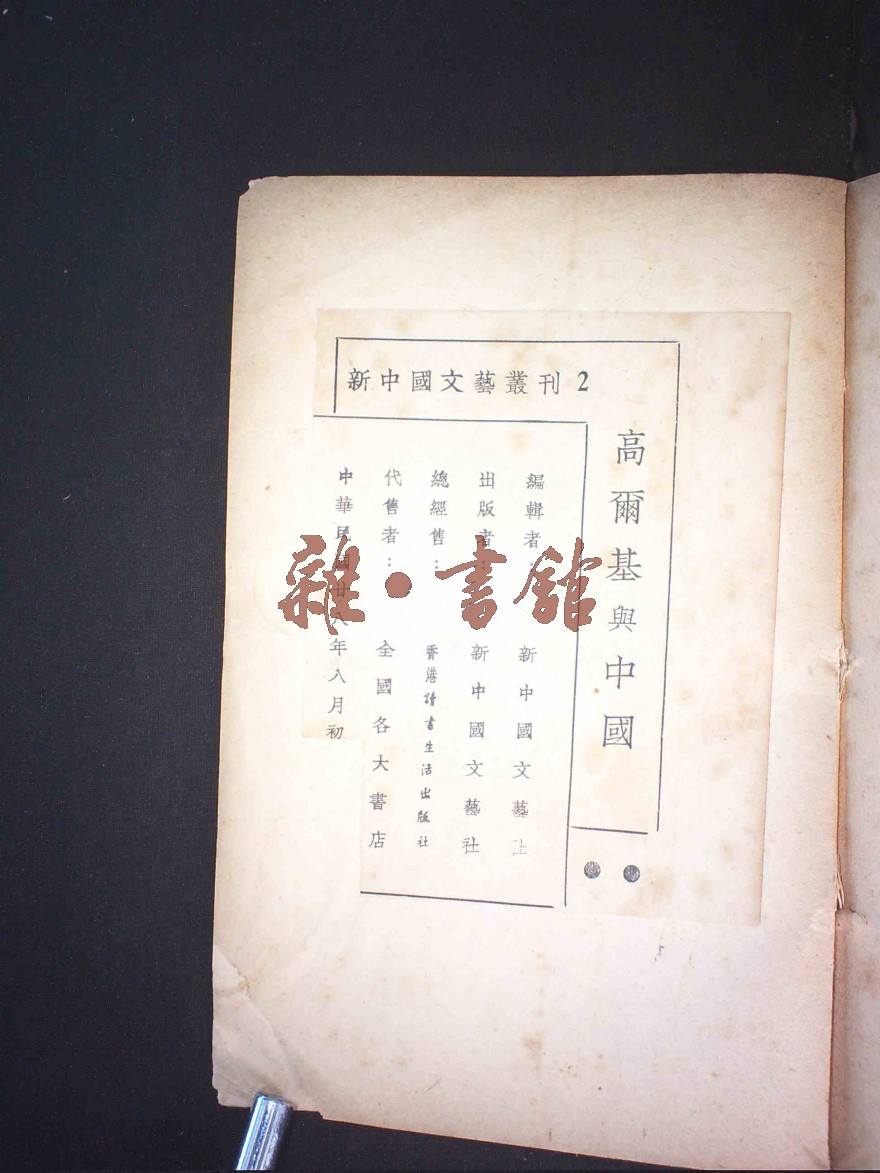 新中國文藝叢刊 2
高爾基與中國
編輯者：新中國文藝社
出版者：新中國文藝社
總經售：香港讀書生活出版社
代售者：全國各大書店
中華民國廿八年八月初
雜·書館